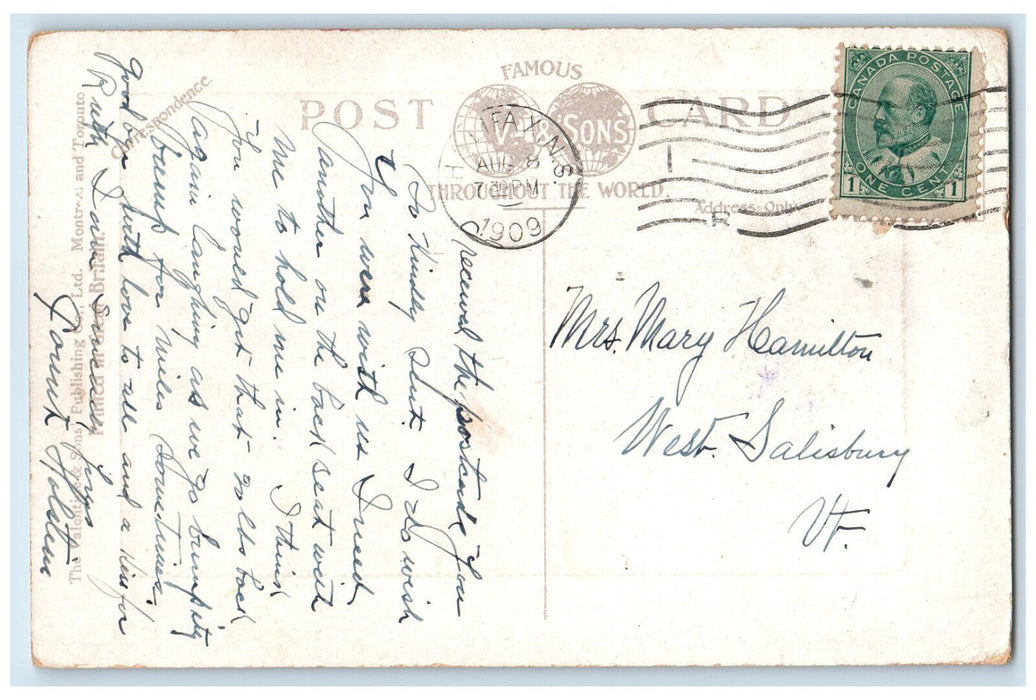 FAMOUS
POST CARD
V. & SONS
THROUGHOUT THE WORLD.
Address Only
HALIFAX, N.S.
AUG 8
1909
R
CANADA POSTAGE
ONE CENT
1 1
Mrs. Mary Hamilton
West. Salisbury
Vt.
Correspondence.
I received the postcards you
so kindly sent. I do wish
you were with us I need
another on the back seat with
me to hold me in. I think
you would get that 20 lbs back
again laughing as we go bumpity
bump for miles sometimes.
good bye with love to all and a kiss for
Ruth. I am sincerely yours
The Valentine & Sons' Publishing Co., Ltd. Montreal and Toronto
Printed in Great Britain.